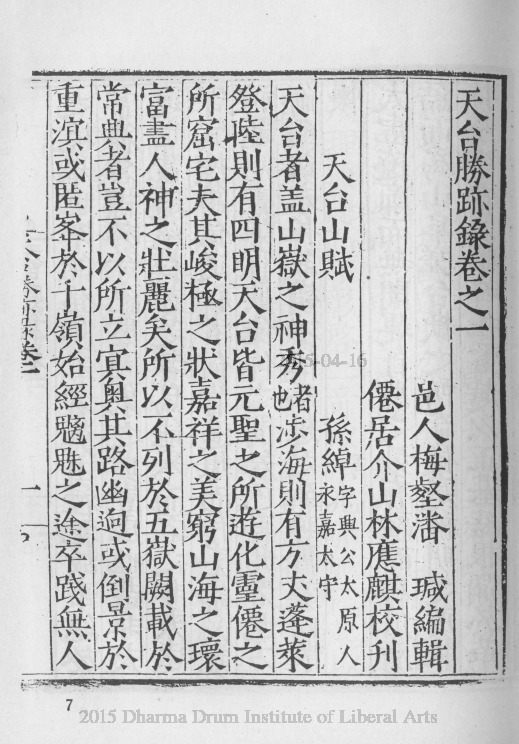 天台勝跡錄卷之一
邑人梅壑潘 瑊編輯
僊居介山林應麒校刊
天台山賦 孫綽 字典公太原人 永嘉太守
天台者盖山嶽之神秀者也涉海則有方丈蓬萊
登陸則有四明天台皆元聖之所遊化靈僊之
所窟宅夫其峻極之狀嘉祥之美窮山海之瓌
富盡人神之壯麗矣所以不列於五嶽闕載於
常典者豈不以所立冥奧其路幽逈或倒景於
重溟或匿峯於千嶺始經魑魅之途卒踐無人
一
7
2015-04-16
2015 Dharma Drum Institute of Liberal Arts